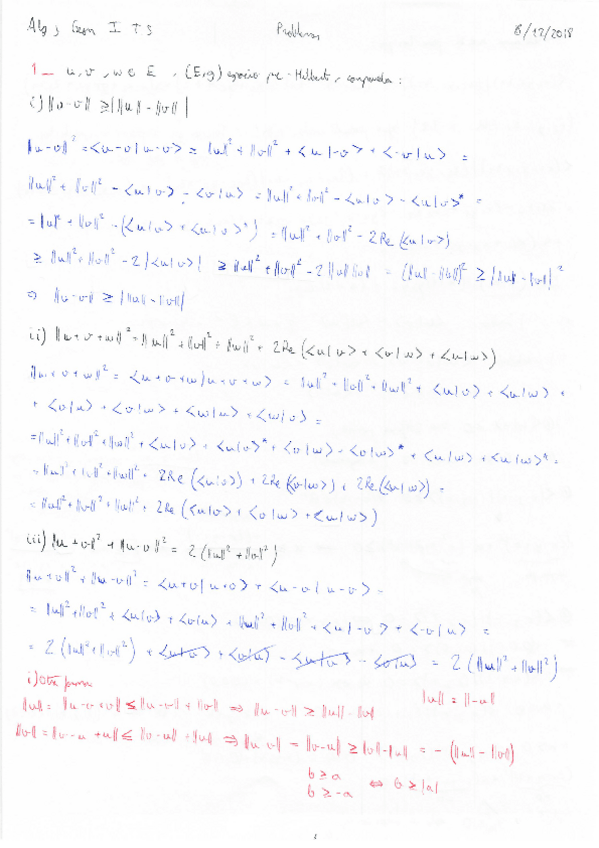 Alg y Geom I T 5 Problemas 5/12/2018
1_ u, v, w ∈ E, (E,g) espacio pre-Hilbert, comprueba:
i) ||u-v|| ≥ | ||u|| - ||v|| |
||u-v||² = <u-v|u-v> = ||u||² + ||v||² + <u|-v> + <-v|u> =
||u||² + ||v||² - <u|v> - <v|u> = ||u||² + ||v||² - <u|v> - <u|v>* =
= ||u||² + ||v||² - (<u|v> + <u|v>*) = ||u||² + ||v||² - 2Re(<u|v>)
≥ ||u||² + ||v||² - 2|<u|v>| ≥ ||u||² + ||v||² - 2||u|| ||v|| = (||u|| - ||v||)² ≥ | ||u|| - ||v|| |²
⇒ ||u-v|| ≥ | ||u|| - ||v|| |
ii) ||u+v+w||² = ||u||² + ||v||² + ||w||² + 2Re(<u|v> + <v|w> + <u|w>)
||u+v+w||² = <u+v+w|u+v+w> = ||u||² + ||v||² + ||w||² + <u|v> + <u|w> +
+ <v|u> + <v|w> + <w|u> + <w|v> =
= ||u||² + ||v||² + ||w||² + <u|v> + <u|v>* + <v|w> + <v|w>* + <u|w> + <u|w>* =
= ||u||² + ||v||² + ||w||² + 2Re(<u|v>) + 2Re(<v|w>) + 2Re(<u|w>) =
= ||u||² + ||v||² + ||w||² + 2Re(<u|v> + <v|w> + <u|w>)
iii) ||u+v||² + ||u-v||² = 2(||u||² + ||v||²)
||u+v||² + ||u-v||² = <u+v|u+v> + <u-v|u-v> =
= ||u||² + ||v||² + <u|v> + <v|u> + ||u||² + ||v||² + <u|-v> + <-v|u> =
= 2(||u||² + ||v||²) + <u|v> + <v|u> - <u|v> - <v|u> = 2(||u||² + ||v||²)
i) Otra forma
||u|| = ||u-v+v|| ≤ ||u-v|| + ||v|| ⇒ ||u-v|| ≥ ||u|| - ||v|| ||u|| = ||-u||
||v|| = ||v-u+u|| ≤ ||v-u|| + ||u|| ⇒ ||u-v|| = ||v-u|| ≥ ||v|| - ||u|| = -(||u|| - ||v||)
b ≥ a
b ≥ -a ⇔ b ≥ |a|